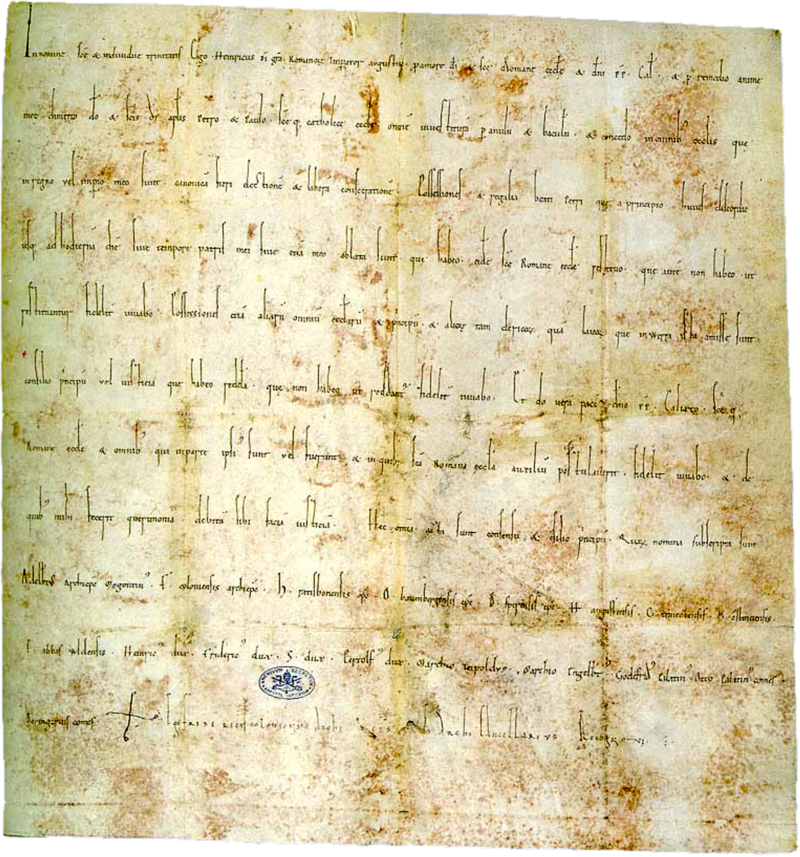 In nomine sce & individue trinitatis Ego Heinricus di gra Romanorꝝ Imperator augustus p amore di & sce Romane eccle & dni pp. Cal. & p remedio anime
mee dimitto do & scis di aplis Petro & Paulo. sceq catholice eccle omne investitura p anulu & baculu. & concedo in omnib ecclis que
in regno vel imperio meo sunt. canonica fieri electione & libera consecratione. Possessiones & regalia beati Petri que a principio huius discordie
usq ad hodierna die sive tempore patris mei sive etia meo ablata sunt que habeo. eide sce Romane eccle restituo. que aute non habeo ut
restituantur fidelit iuvabo. Possessiones etia aliaru omniu ecclaru & principu & alioꝝ tam clericoꝝ qua laicoꝝ que in werra ista amisse sunt.
consilio principu vel iusticia que habeo redda. que non habeo ut reddant fidelit iuvabo. Et do vera pace dno pp. Calixto. sceq
Romane eccle & omnib qui in parte ipsi sunt vel fuerunt & in quib sca Romana eccla auxiliu postulaverit. fidelit iuvabo. & de
quib mihi fecerit querimonia debita sibi facia iusticia. Hec omnia acta sunt consensu & csilio principu Quoꝝ nomina subscripta sunt
Adelbtus archiepc Mogontin. F. coloniensis archiepc. H. ratisbonensis epc. O. bauenbergensis epc. B. spirensis epc. H. augustensis. G. traiectensis. O. constanciensis.
E. abbas uldensis. Heinric dux. Frideric dux. S. dux. Pertolf dux. Marchio teipoldus. Marchio Engelbt. Godefrid Palatin. Otto Palatin comes.
Beringarius comes